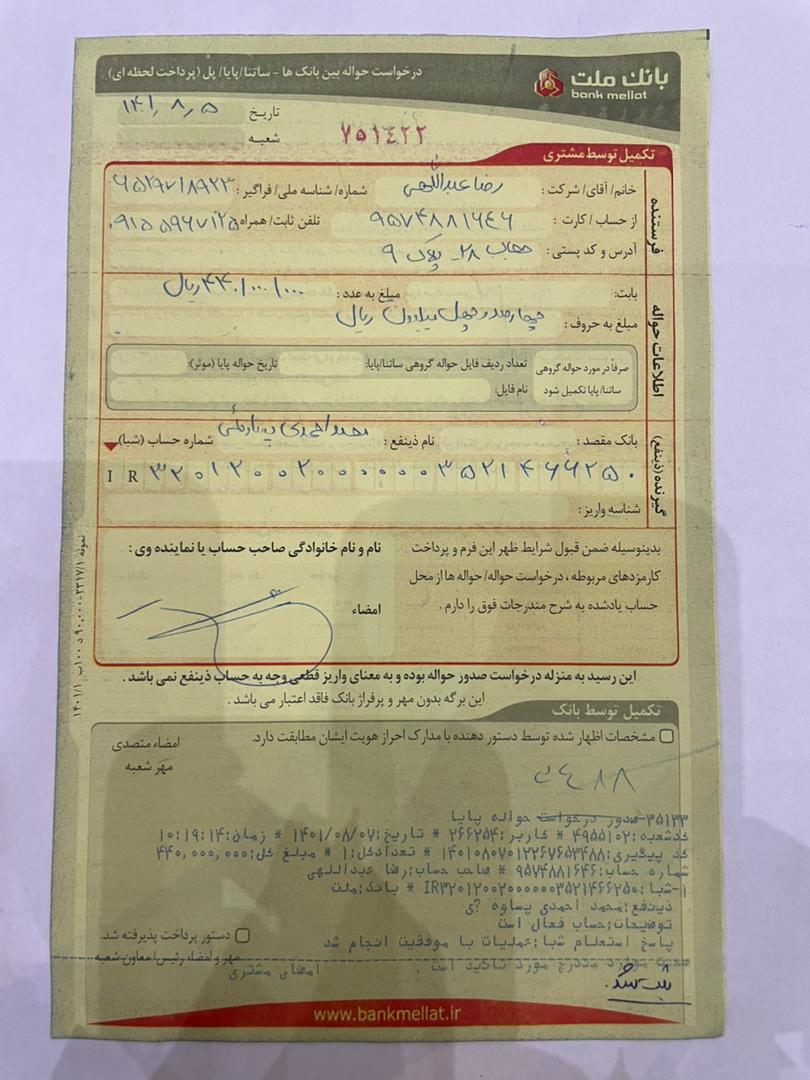 بانک ملت
bank mellat
درخواست حواله بین بانک ها - ساتنا/پایا/ پل (پرداخت لحظه ای)
تاریخ ۱۴۰۱/۸/۵
شعبه
۷۵۱۴۲۲
تکمیل توسط مشتری
فرستنده
خانم/ آقای/ شرکت : رضا عبداللهی شماره/ شناسه ملی/ فراگیر :
از حساب / کارت : ۹۵۷۴۸۸۱۶۴۶ تلفن ثابت/ همراه ۰۹۱۵۵۹۶۷۱۲۵
آدرس و کد پستی : ۲۸ - پلاک ۹
اطلاعات حواله
بابت: مبلغ به عدد : ۴۴۰/۰۰۰/۰۰۰ ریال
مبلغ به حروف : چهارصد و چهل میلیون ریال
صرفاً در مورد حواله گروهی ساتنا/ پایا تکمیل شود
تعداد ردیف فایل حواله گروهی ساتنا/پایا: تاریخ حواله پایا (موثر):
نام فایل:
گیرنده (ذینفع)
بانک مقصد : نام ذینفع : محمد احمدی شماره حساب (شبا)
I R ۳۲۰۱۲۰۰۲۰۰۰۰۰۰۳۵۲۱۴۶۶۲۵۰
شناسه واریز :
بدینوسیله ضمن قبول شرایط ظهر این فرم و پرداخت
کارمزدهای مربوطه ، درخواست حواله/ حواله ها از محل
حساب یادشده به شرح مندرجات فوق را دارم .
نام و نام خانوادگی صاحب حساب یا نماینده وی :
امضاء
این رسید به منزله درخواست صدور حواله بوده و به معنای واریز قطعی وجه به حساب ذینفع نمی باشد .
این برگه بدون مهر و پرفراژ بانک فاقد اعتبار می باشد .
تکمیل توسط بانک
مشخصات اظهار شده توسط دستور دهنده با مدارک احراز هویت ایشان مطابقت دارد.
امضاء متصدی
مهر شعبه
۳۵۱۳۳-صدور درخواست حواله پایا
کدشعبه:۴۹۵۵۱۰۲ * کاربر:۲۶۶۲۵۴ * تاریخ:۱۴۰۱/۰۸/۰۷ * زمان:۱۰:۱۹:۱۴
کد پیگیری:۱۴۰۱۰۸۰۷۰۱۲۲۶۷۶۵۳۴۸۸ * تعدادکل:۱ * مبلغ کل:۴۴۰,۰۰۰,۰۰۰
شماره حساب:۹۵۷۴۸۸۱۶۴۶ * صاحب حساب:رضا عبداللهی
۱-شبا:IR۳۲۰۱۲۰۰۲۰۰۰۰۰۰۳۵۲۱۴۶۶۲۵۰ * بانک:ملت
ذینفع:محمد احمدی پساوه ?ی
توضیحات:حساب فعال است
پاسخ استعلام شبا:عملیات با موفقیت انجام شد
موارد مندرج مورد تائید است
امضای مشتری
دستور پرداخت پذیرفته شد.
مهر و امضاء رئیس/ معاون شعبه
ثبت شد.
www.bankmellat.ir